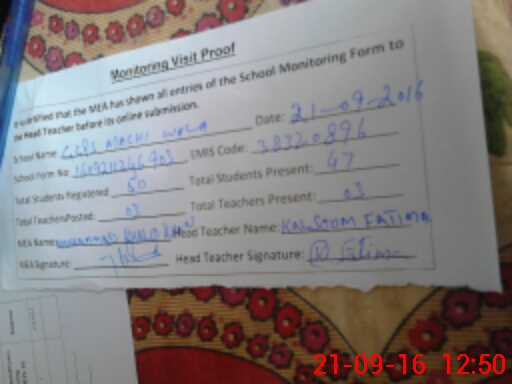 Monitoring Visit Proof
is certified that the MEA has shown all entries of the School Monitoring Form to
the Head Teacher before its online submission.
School Name: GGPS MACHI WALA Date: 21-09-2016
School Form No: EMIS Code: 38320896
Total Students Registered: 50 Total Students Present: 47
Total Teachers Posted: 03 Total Teachers Present: 03
MEA Name: MUHAMMAD KHAN Head Teacher Name: KALSTOM FATIMA
MEA Signature: Head Teacher Signature: K Fatima
21-09-16 12:50